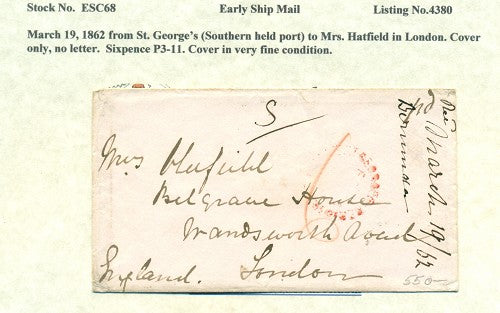 Stock No. ESC68 Early Ship Mail Listing No.4380
March 19, 1862 from St. George's (Southern held port) to Mrs. Hatfield in London. Cover
only, no letter. Sixpence P3-11. Cover in very fine condition.
S
Mrs Oldfield
Belgrave House
Wandsworth
England. London
March 19/62
Bermuda
550